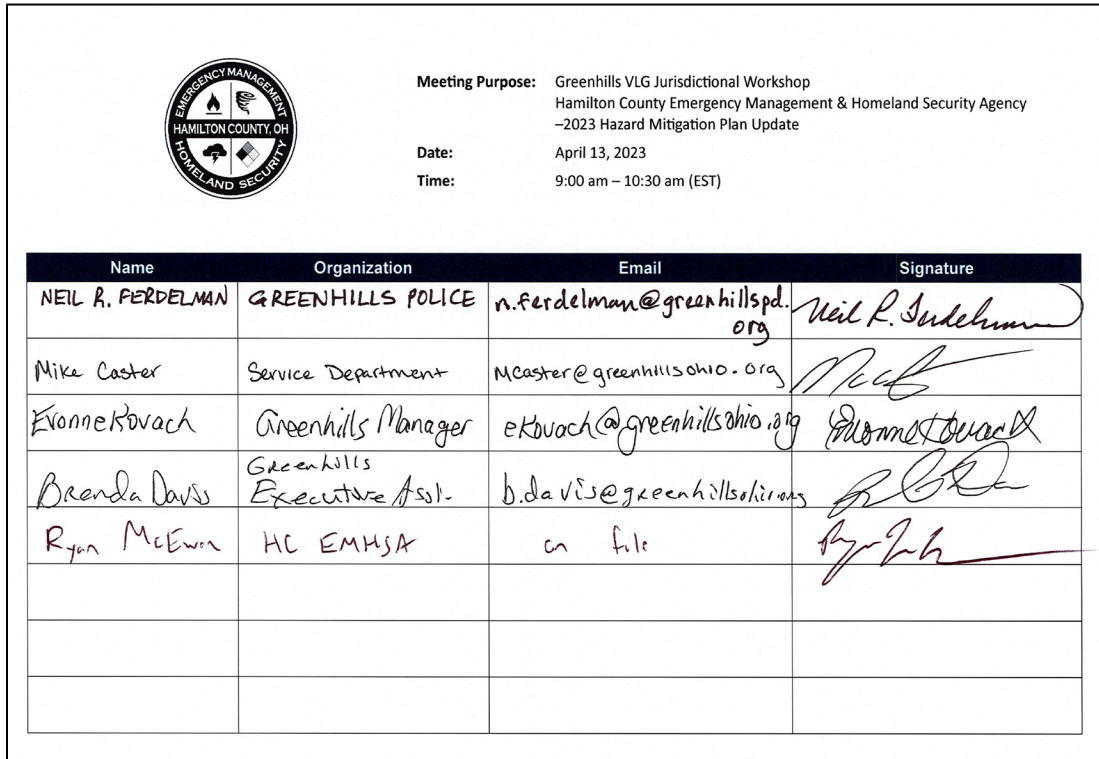 EMERGENCY MANAGEMENT
HAMILTON COUNTY, OH
HOMELAND SECURITY
Meeting Purpose: Greenhills VLG Jurisdictional Workshop
Hamilton County Emergency Management & Homeland Security Agency
–2023 Hazard Mitigation Plan Update
Date: April 13, 2023
Time: 9:00 am – 10:30 am (EST)
Name Organization Email Signature
NEIL R. FERDELMAN GREENHILLS POLICE n.ferdelman@greenhillspd. Neil R. Ferdelman
org
Mike Caster Service Department mcaster@greenhillsohio.org
Evonne Kovach Greenhills Manager ekovach@greenhillsohio.org Evonne Kovach
Greenhills
Brenda Davis Executive Asst. b.davis@greenhillsohio.org
Ryan McEwan HC EMHSA on file